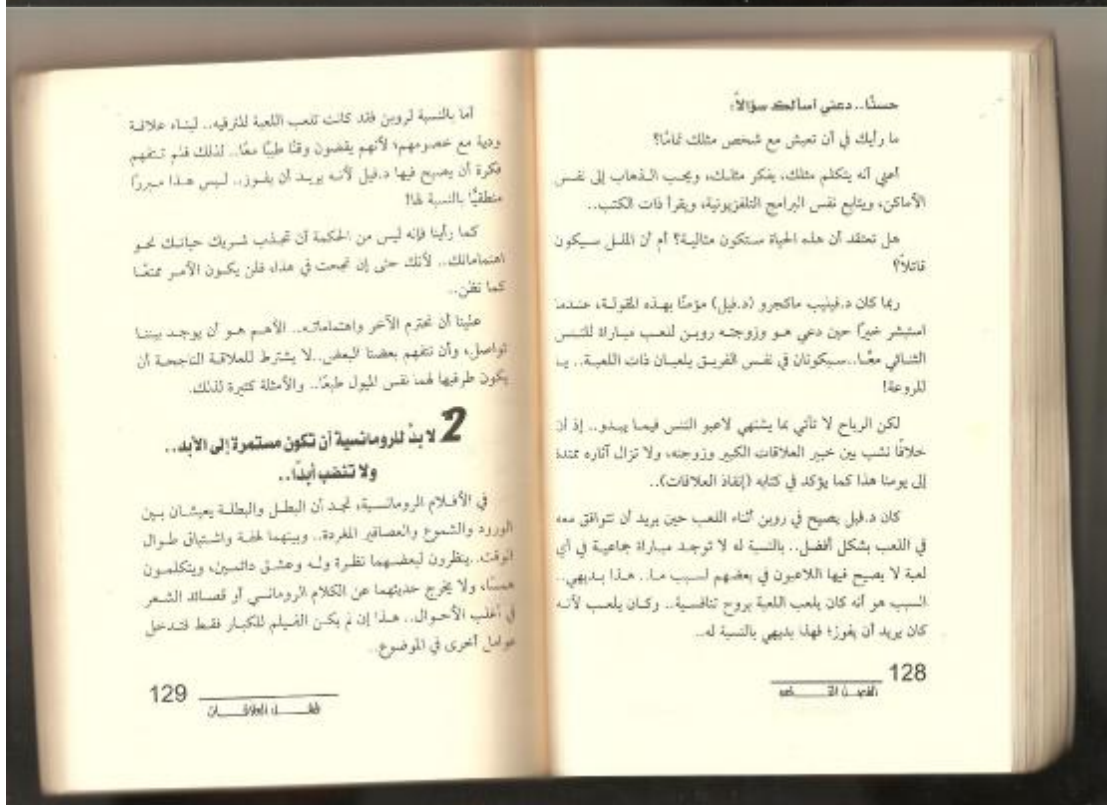 حسنًا.. دعني أسألك سؤالاً:
ما رأيك في أن تعيش مع شخص مثلك تمامًا؟
أعني أنه يتكلم مثلك، يفكر مثلك، ويحب الذهاب إلى نفس
الأماكن، ويتابع نفس البرامج التلفزيونية، ويقرأ ذات الكتب..
هل تعتقد أن هذه الحياة ستكون مثالية؟ أم أن الملل سيكون
قاتلاً؟
ربما كان د.فيليب ماكجرو (د.فيل) مؤمنًا بهذه المقولة، عندما
استبشر خيرًا حين دعي هو وزوجته روبن للعب مباراة للتنس
الثنائي معًا..سيكونان في نفس الفريق يلعبان ذات اللعبة.. يا
للروعة!
لكن الرياح لا تأتي بما يشتهي لاعبو التنس فيما يبدو.. إذ أن
خلافًا نشب بين خبير العلاقات الكبير وزوجته، ولا تزال آثاره ممتدة
إلى يومنا هذا كما يؤكد في كتابه (إنقاذ العلاقات)..
كان د.فيل يصيح في روبن أثناء اللعب حين يريد أن تتوافق معه
في اللعب بشكل أفضل.. بالنسبة له لا توجد مباراة جماعية في أي
لعبة لا يصيح فيها اللاعبون في بعضهم لسبب ما.. هذا بديهي..
السبب هو أنه كان يلعب اللعبة بروح تنافسية.. وكان يلعب لأنه
كان يريد أن يفوز؛ فهذا بديهي بالنسبة له..
128
أما بالنسبة لروبن فقد كانت تلعب اللعبة للترفيه.. لبناء علاقة
ودية مع خصومهم؛ لأنهم يقضون وقتًا طيبًا معًا.. لذلك فلم تتفهم
فكرة أن يصيح فيها د.فيل لأنه يريد أن يفوز.. ليس هذا مبررًا
منطقيًّا بالنسبة لها!
كما رأينا فإنه ليس من الحكمة أن تجذب شريك حياتك نحو
اهتماماتك.. لأنك حتى إن نجحت في هذا، فلن يكون الأمر ممتعًا
كما تظن..
علينا أن نحترم الآخر واهتماماته.. الأهم هو أن يوجد بيننا
تواصل، وأن نتفهم بعضنا البعض..لا يشترط للعلاقة الناجحة أن
يكون طرفيها لهما نفس الميول طبعًا.. والأمثلة كثيرة لذلك.
2 لا بدّ للرومانسية أن تكون مستمرة إلى الأبد..
ولا تنضب أبدًا..
في الأفلام الرومانسية، نجد أن البطل والبطلة يعيشان بين
الورود والشموع والعصافير المغردة.. وبينهما لهفة واشتياق طوال
الوقت..ينظرون لبعضهما نظرة وله وعشق دائمين، ويتكلمون
همسًا، ولا يخرج حديثهما عن الكلام الرومانسي أو قصائد الشعر
في أغلب الأحوال.. هذا إن لم يكن الفيلم للكبار فقط فتدخل
عوامل أخرى في الموضوع..
129